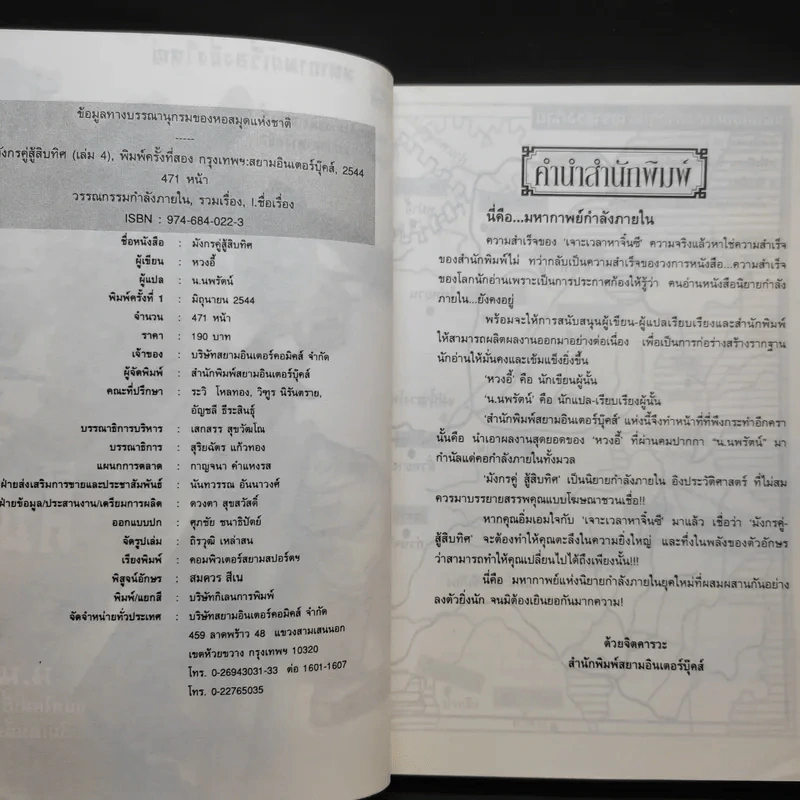 ข้อมูลทางบรรณานุกรมของหอสมุดแห่งชาติ
-----
มังกรคู่สู้สิบทิศ (เล่ม 4), พิมพ์ครั้งที่สอง กรุงเทพฯ:สยามอินเตอร์บุ๊คส์, 2544
471 หน้า
วรรณกรรมกำลังภายใน, รวมเรื่อง, I.ชื่อเรื่อง
ISBN : 974-684-022-3
ชื่อหนังสือ : มังกรคู่สู้สิบทิศ
ผู้เขียน : หวงอี้
ผู้แปล : น.นพรัตน์
พิมพ์ครั้งที่ 1 : มิถุนายน 2544
จำนวน : 471 หน้า
ราคา : 190 บาท
เจ้าของ : บริษัทสยามอินเตอร์คอมิคส์ จำกัด
ผู้จัดพิมพ์ : สำนักพิมพ์สยามอินเตอร์บุ๊คส์
คณะที่ปรึกษา : ระวิ โหลทอง, วิฑูร นิรันตราย,
อัญชลี ธีระสินธุ์
บรรณาธิการบริหาร : เสกสรร สุขวัฒโณ
บรรณาธิการ : สุริยฉัตร แก้วทอง
แผนกการตลาด : กาญจนา คำแหงรส
ฝ่ายส่งเสริมการขายและประชาสัมพันธ์ : นันทวรรณ อันนาวงศ์
ฝ่ายข้อมูล/ประสานงาน/เตรียมการผลิต : ดวงตา สุขสวัสดิ์
ออกแบบปก : ศุภชัย ชนาธิปัตย์
จัดรูปเล่ม : ถิรวุฒิ เหล่าสน
เรียงพิมพ์ : คอมพิวเตอร์สยามสปอร์ตฯ
พิสูจน์อักษร : สมควร สีเน
พิมพ์/แยกสี : บริษัทกิเลนการพิมพ์
จัดจำหน่ายทั่วประเทศ : บริษัทสยามอินเตอร์คอมิคส์ จำกัด
459 ลาดพร้าว 48 แขวงสามเสนนอก
เขตห้วยขวาง กรุงเทพฯ 10320
โทร. 0-26943031-33 ต่อ 1601-1607
โทร. 0-22765035
คำนำสำนักพิมพ์
นี่คือ...มหากาพย์กำลังภายใน
ความสำเร็จของ 'เจาะเวลาหาจิ๋นซี' ความจริงแล้วหาใช่ความสำเร็จ
ของสำนักพิมพ์ไม่ ทว่ากลับเป็นความสำเร็จของวงการหนังสือ...ความสำเร็จ
ของโลกนักอ่านเพราะเป็นการประกาศก้องให้รู้ว่า คนอ่านหนังสือนิยายกำลัง
ภายใน...ยังคงอยู่
พร้อมจะให้การสนับสนุนผู้เขียน-ผู้แปลเรียบเรียงและสำนักพิมพ์
ให้สามารถผลิตผลงานออกมาอย่างต่อเนื่อง เพื่อเป็นการก่อร่างสร้างรากฐาน
นักอ่านให้มั่นคงและเข้มแข็งยิ่งขึ้น
'หวงอี้' คือ นักเขียนผู้นั้น
'น.นพรัตน์' คือ นักแปล-เรียบเรียงผู้นั้น
'สำนักพิมพ์สยามอินเตอร์บุ๊คส์' แห่งนี้จึงทำหน้าที่ที่พึงกระทำอีกครา
นั้นคือ นำเอาผลงานสุดยอดของ 'หวงอี้' ที่ผ่านคมปากกา "น.นพรัตน์" มา
กำนัลแด่คอกำลังภายในทั้งมวล
'มังกรคู่ สู้สิบทิศ' เป็นนิยายกำลังภายใน อิงประวัติศาสตร์ ที่ไม่สม
ควรมาบรรยายสรรพคุณแบบโฆษณาชวนเชื่อ!!
หากคุณอิ่มเอมใจกับ 'เจาะเวลาหาจิ๋นซี' มาแล้ว เชื่อว่า 'มังกรคู่-
สู้สิบทิศ' จะต้องทำให้คุณตะลึงในความยิ่งใหญ่ และทึ่งในพลังของตัวอักษร
ว่าสามารถทำให้คุณเปลี่ยนไปได้ถึงเพียงนั้น!!!
นี่คือ มหากาพย์แห่งนิยายกำลังภายในยุคใหม่ที่ผสมผสานกันอย่าง
ลงตัวยิ่งนัก จนมิต้องเยินยอกันมากความ!
ด้วยจิตคารวะ
สำนักพิมพ์สยามอินเตอร์บุ๊คส์